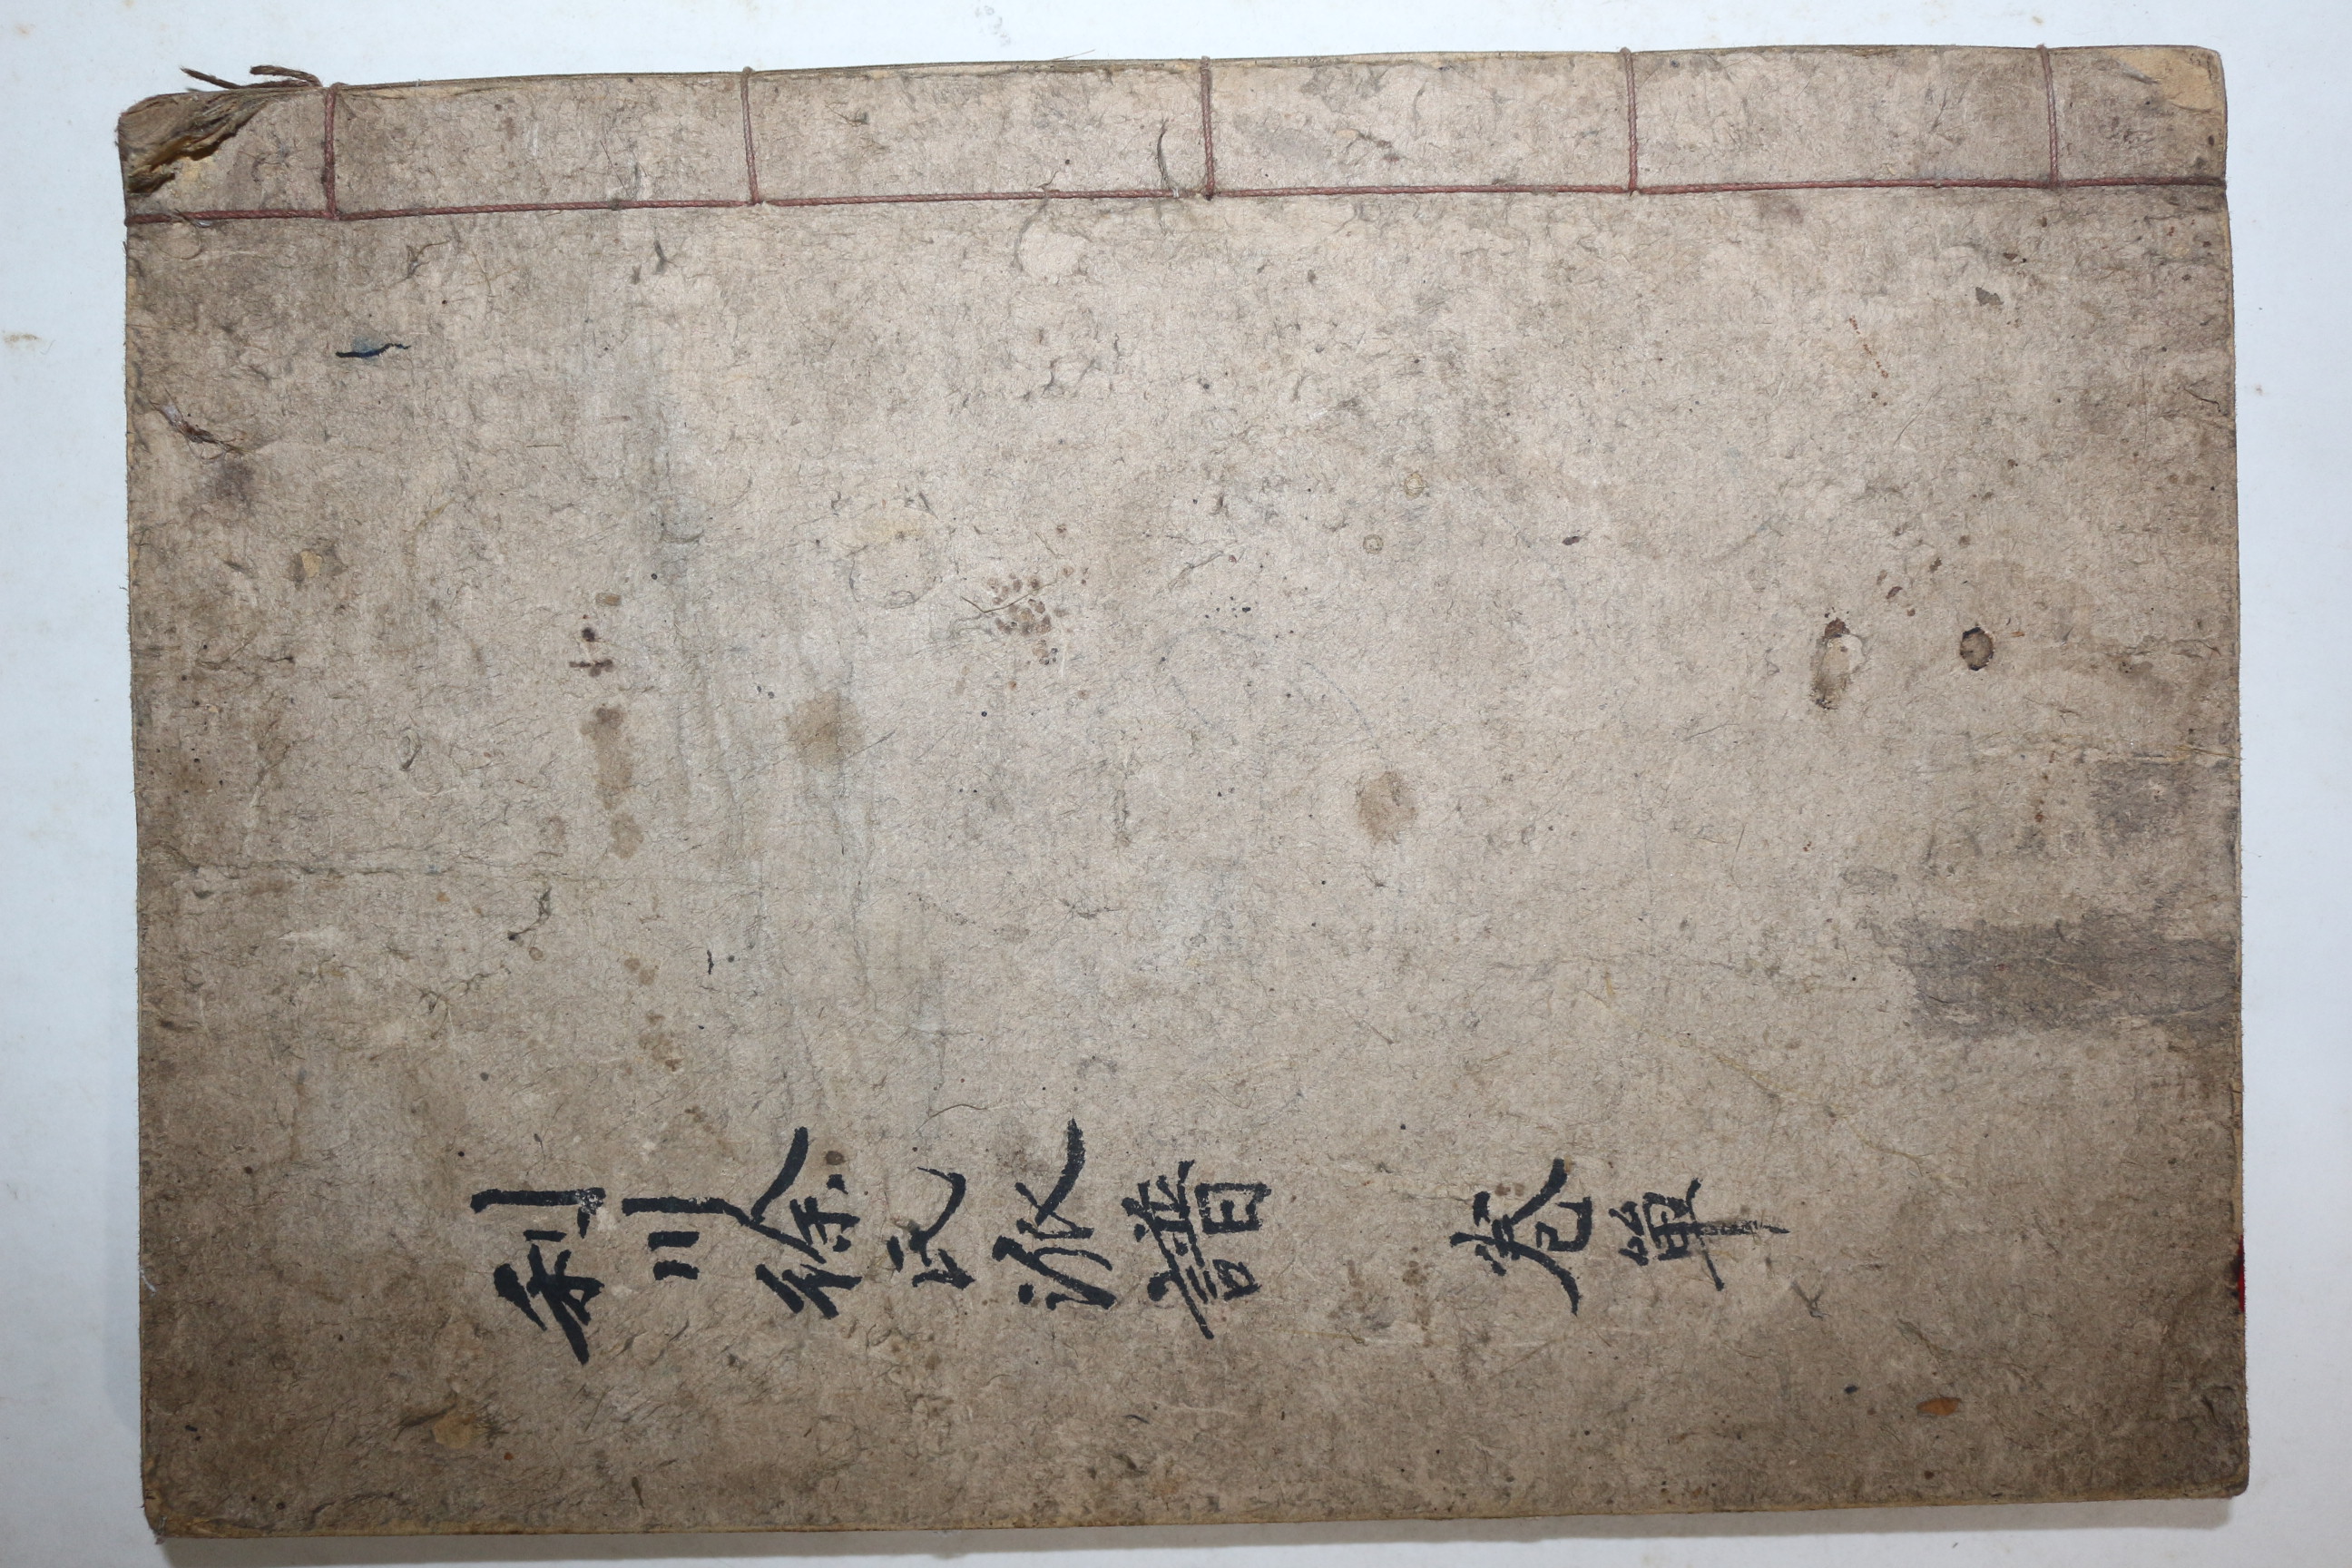 利川徐氏派譜 卷單